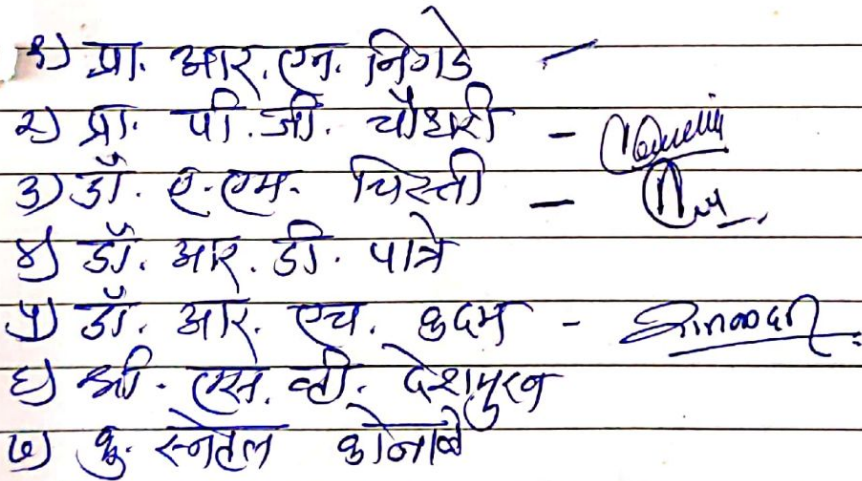 १) प्रा. आर. एन. निगडे -
२) प्रा. पी. जी. चौधरी -
३) डॉ. ए. एम. चिस्ती -
४) डॉ. आर. डी. पात्रे
५) डॉ. आर. एच. कदम -
६) श्री. एस. व्ही. देशमुख
७) कु. स्नेहल